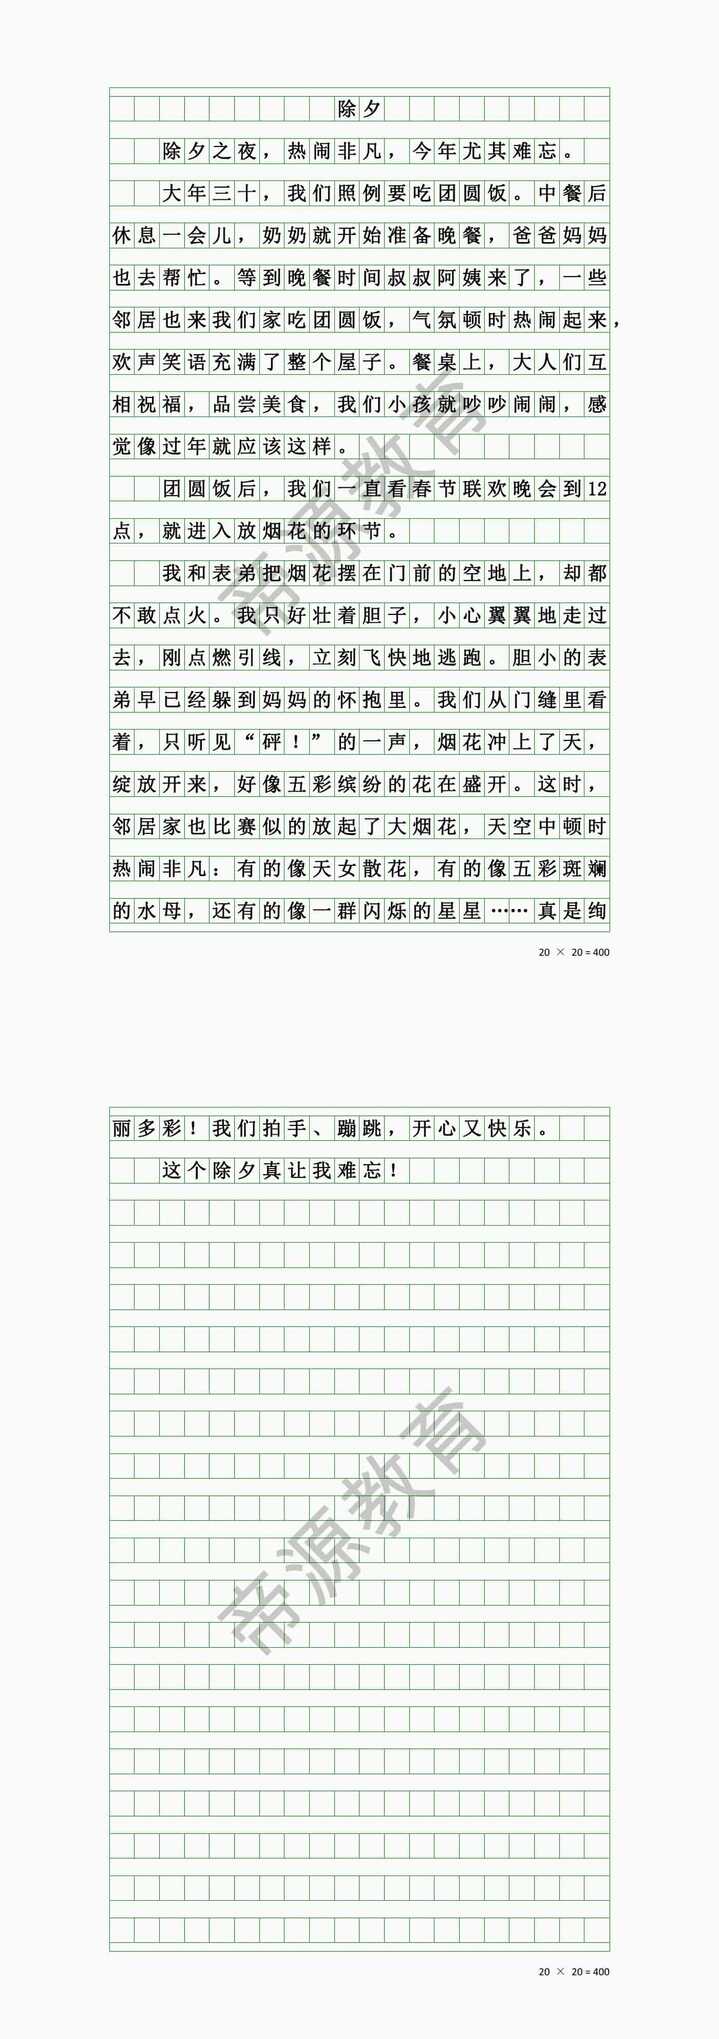 除夕
除夕之夜，热闹非凡，今年尤其难忘。
大年三十，我们照例要吃团圆饭。中餐后
休息一会儿，奶奶就开始准备晚餐，爸爸妈妈
也去帮忙。等到晚餐时间叔叔阿姨来了，一些
邻居也来我们家吃团圆饭，气氛顿时热闹起来，
欢声笑语充满了整个屋子。餐桌上，大人们互
相祝福，品尝美食，我们小孩就吵吵闹闹，感
觉像过年就应该这样。
团圆饭后，我们一直看春节联欢晚会到12
点，就进入放烟花的环节。
我和表弟把烟花摆在门前的空地上，却都
不敢点火。我只好壮着胆子，小心翼翼地走过
去，刚点燃引线，立刻飞快地逃跑。胆小的表
弟早已经躲到妈妈的怀抱里。我们从门缝里看
着，只听见“砰！”的一声，烟花冲上了天，
绽放开来，好像五彩缤纷的花在盛开。这时，
邻居家也比赛似的放起了大烟花，天空中顿时
热闹非凡：有的像天女散花，有的像五彩斑斓
的水母，还有的像一群闪烁的星星……真是绚
20 × 20 = 400
丽多彩！我们拍手、蹦跳，开心又快乐。
这个除夕真让我难忘！
20 × 20 = 400
帝源教育
帝源教育